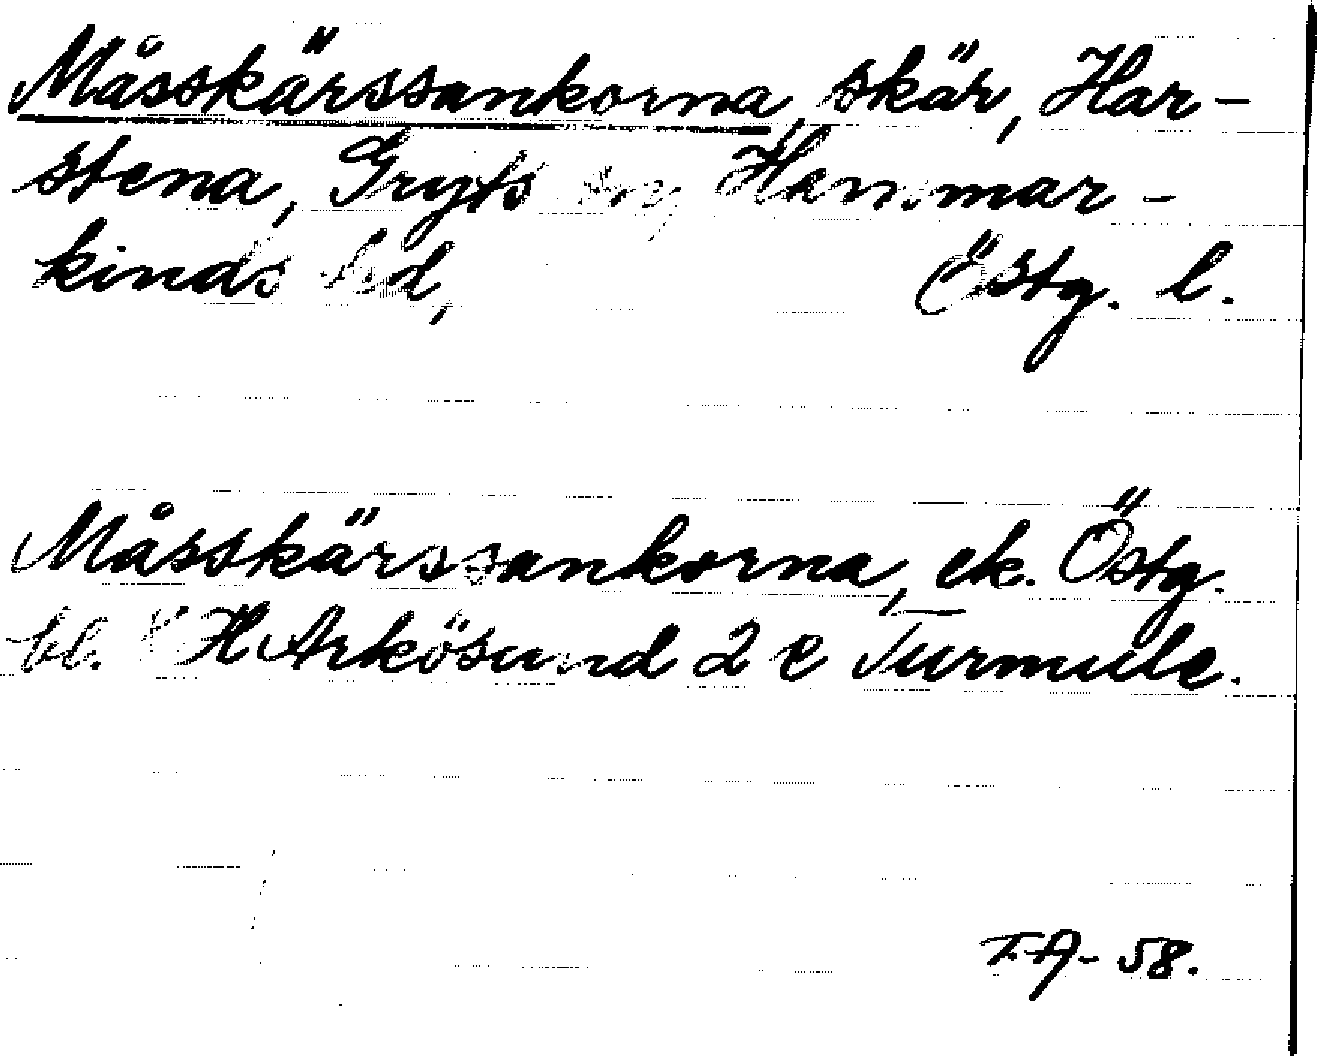 Måsskärssankorna, skär, Har-
stena, Gryts sn, Hammar-
kinds hd, Östg. l.
Måsskärssankorna, ek. Östg.
bl. H Arkösund 2 e Turmule.
T.A-58.